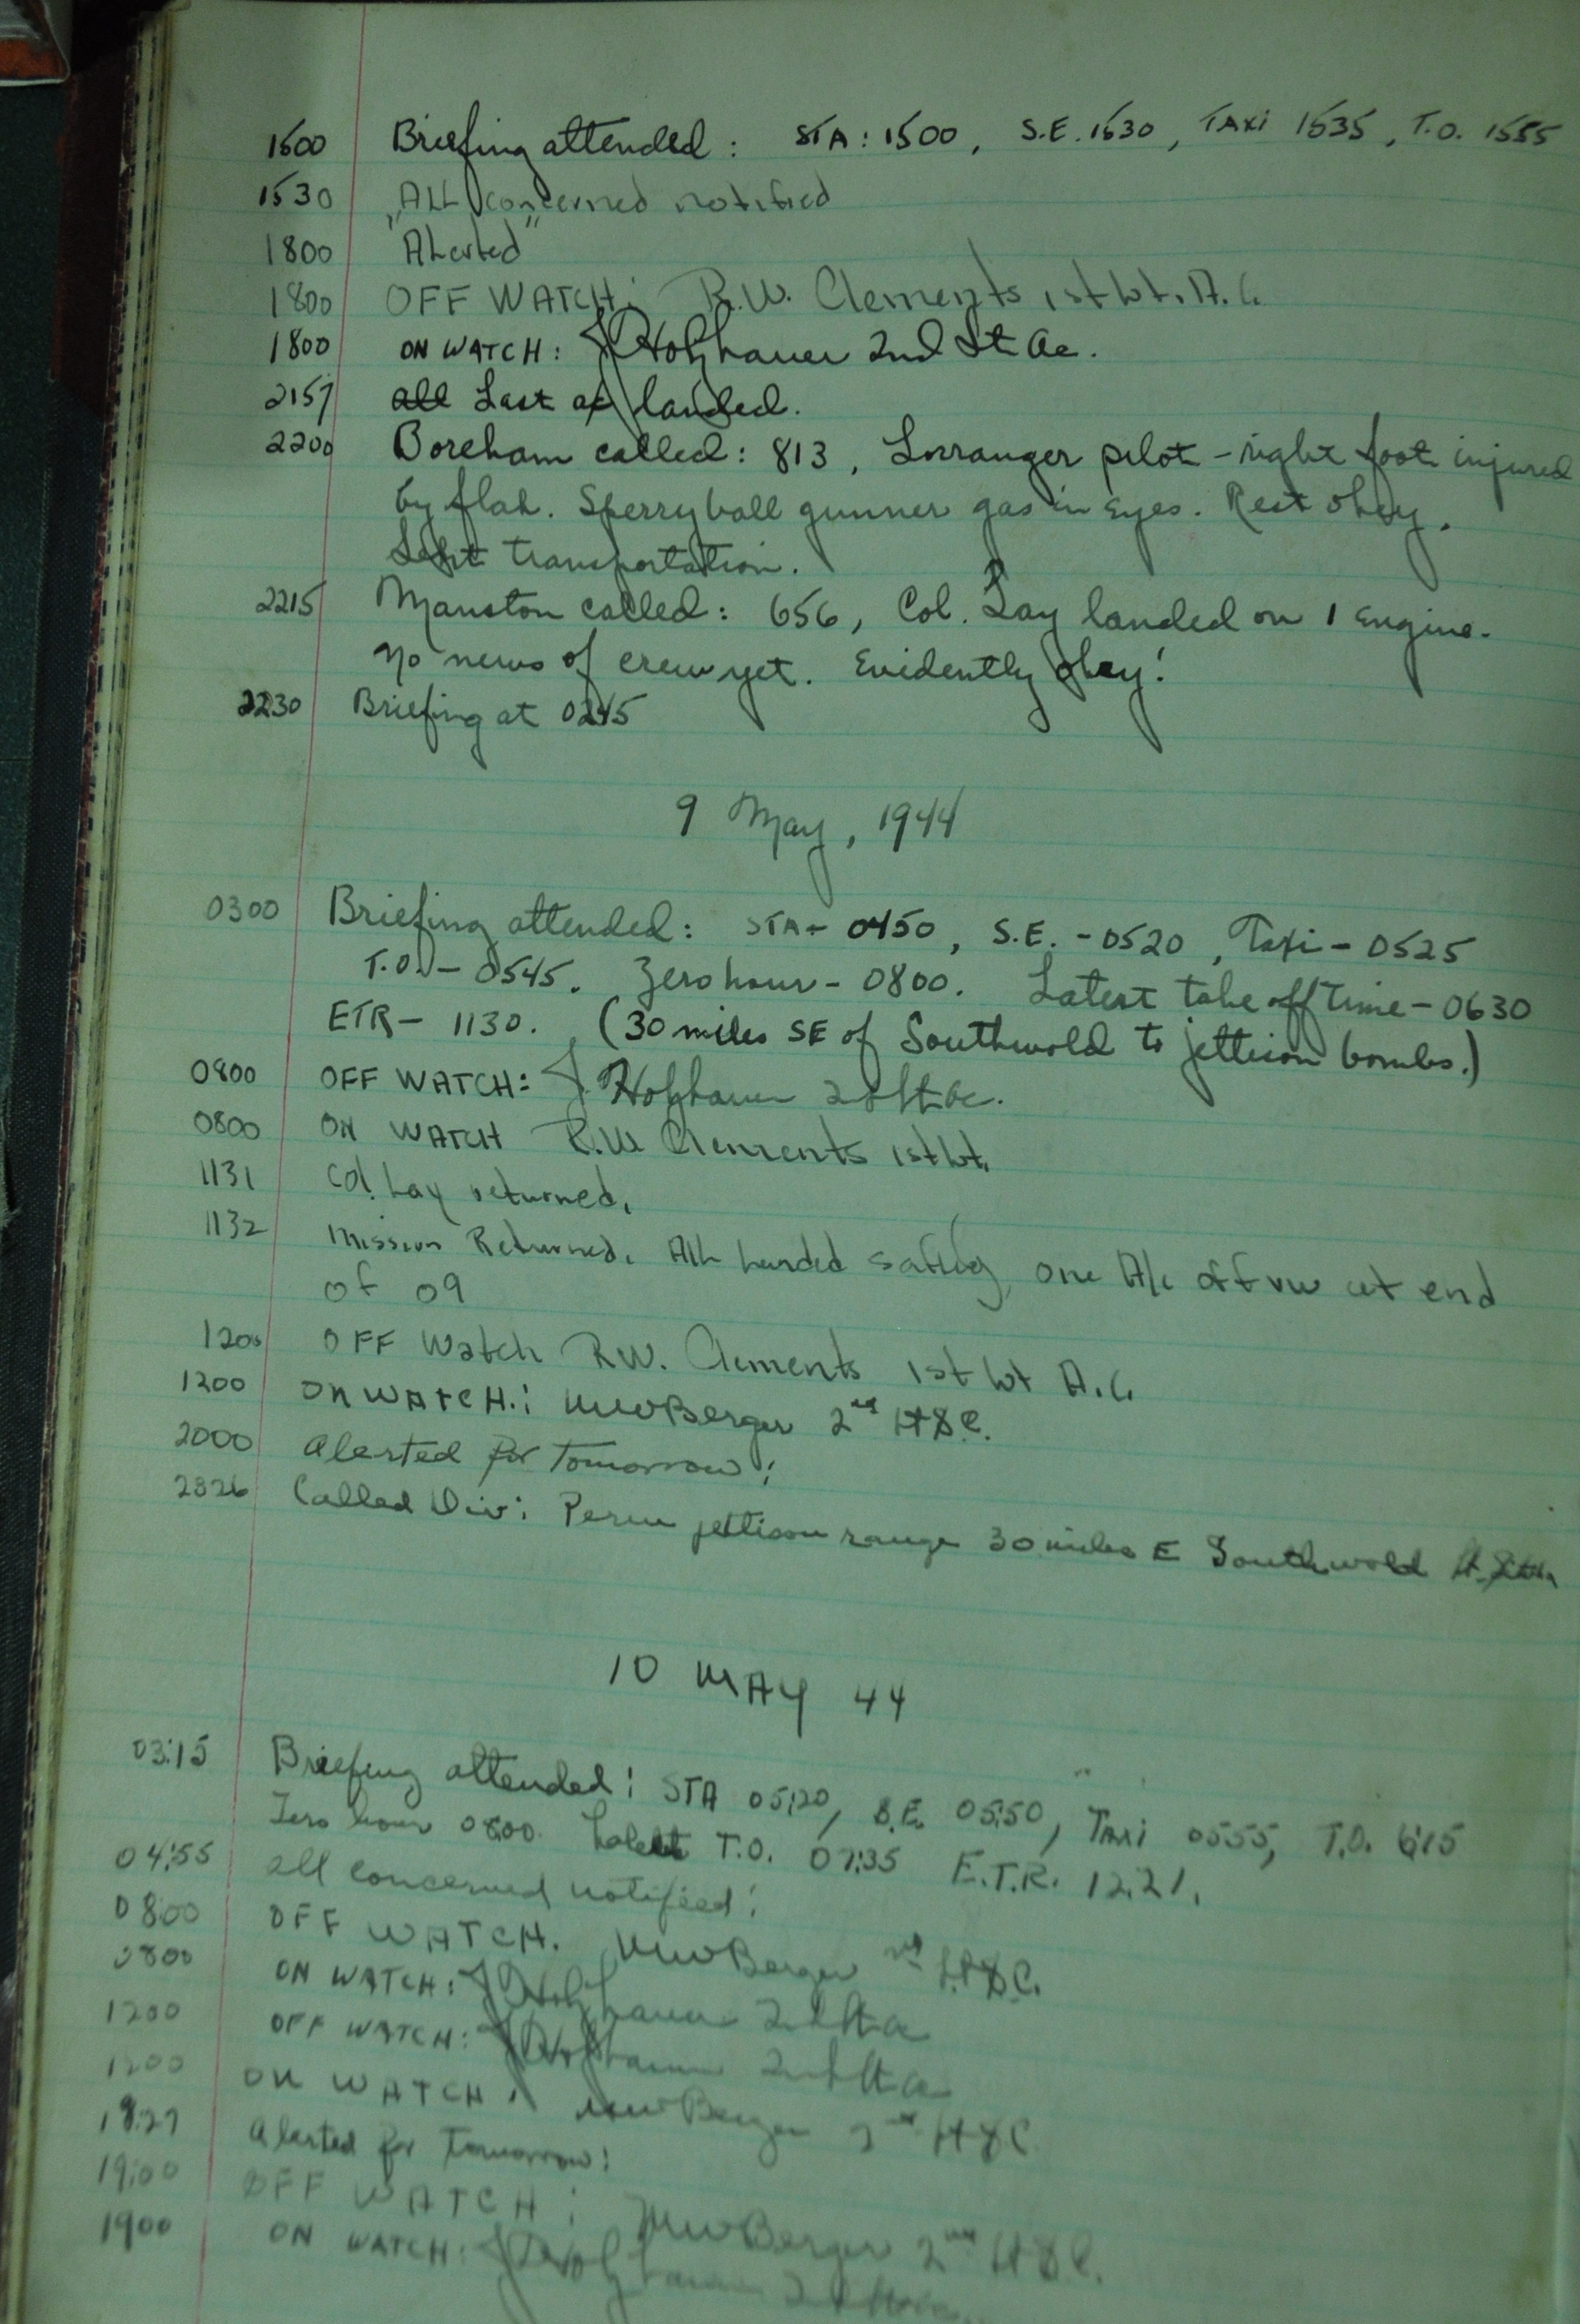 1500 Briefing attended: STA: 1500, S.E. 1530, TAXI 1535, T.O. 1555
1530 "ALL concerned notified
1800 "Alerted"
1800 OFF WATCH: R.W. Clements 1st Lt. A.C.
1800 ON WATCH: J Holzhauer 2nd Lt Ac.
2157 all Last ac landed.
2200 Boreham called: 813, Lorranger pilot - right foot injured
by flak. Sperry ball gunner gas in eyes. Rest okey.
Sent transportation.
2215 Manston called: 656, Col. Lay landed on 1 Engine.
No news of crew yet. Evidently okey!
2230 Briefing at 0245
9 May, 1944
0300 Briefing attended: STA - 0450, S.E. - 0520, Taxi - 0525
T.O. - 0545. Zero hour - 0800. Latest take off time - 0630
ETR - 1130. (30 miles SE of Southwold to jettison bombs.)
0800 OFF WATCH: J Holzhauer 2d Lt ac.
0800 ON WATCH R.W. Clements 1st Lt.
1131 Col. Lay returned.
1132 Mission Returned. All landed safely, one A/c off rw at end
of 09
1200 OFF Watch R.W. Clements 1st Lt A.C.
1200 ON WATCH.: Berger 2nd Lt
2000 Alerted for tomorrow:
2326 Called Div: jettison range 30 miles E Southwold
10 MAY 44
03:15 Briefing attended: STA 05:20, S.E. 05:50, TAXI 0555, T.O. 6:15
Zero hour 0800. Latest T.O. 07:35 E.T.R. 12:21.
04:55 all concerned notified:
0800 OFF WATCH. Berger 2nd Lt
0800 ON WATCH: J Holzhauer 2d Lt ac
1200 OFF WATCH: J Holzhauer 2nd Lt ac
1200 ON WATCH: Berger 2nd Lt
18:27 Alerted for tomorrow:
19:00 OFF WATCH: Berger 2nd Lt
1900 ON WATCH: J Holzhauer 2d Lt